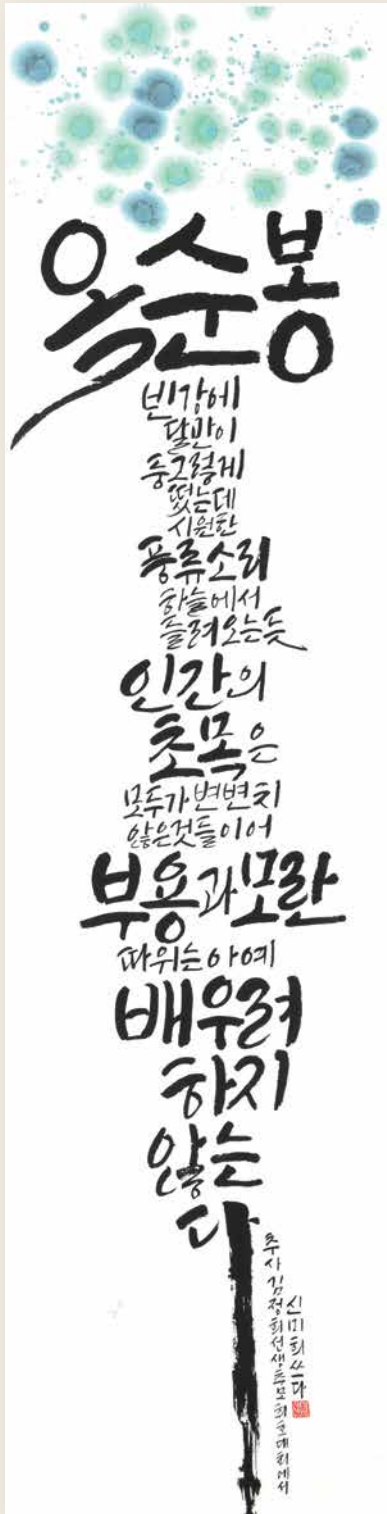 옥순봉
빈강에
달만이
둥그렇게
떴는데
시원한
풍류소리
하늘에서
들려오는듯
인간의
초목은
모두가변변치
않은것들이어
부용과모란
따위는아예
배우려
하지
않는
다
추사김정희선생추모휘호대회에서
신미희쓰다